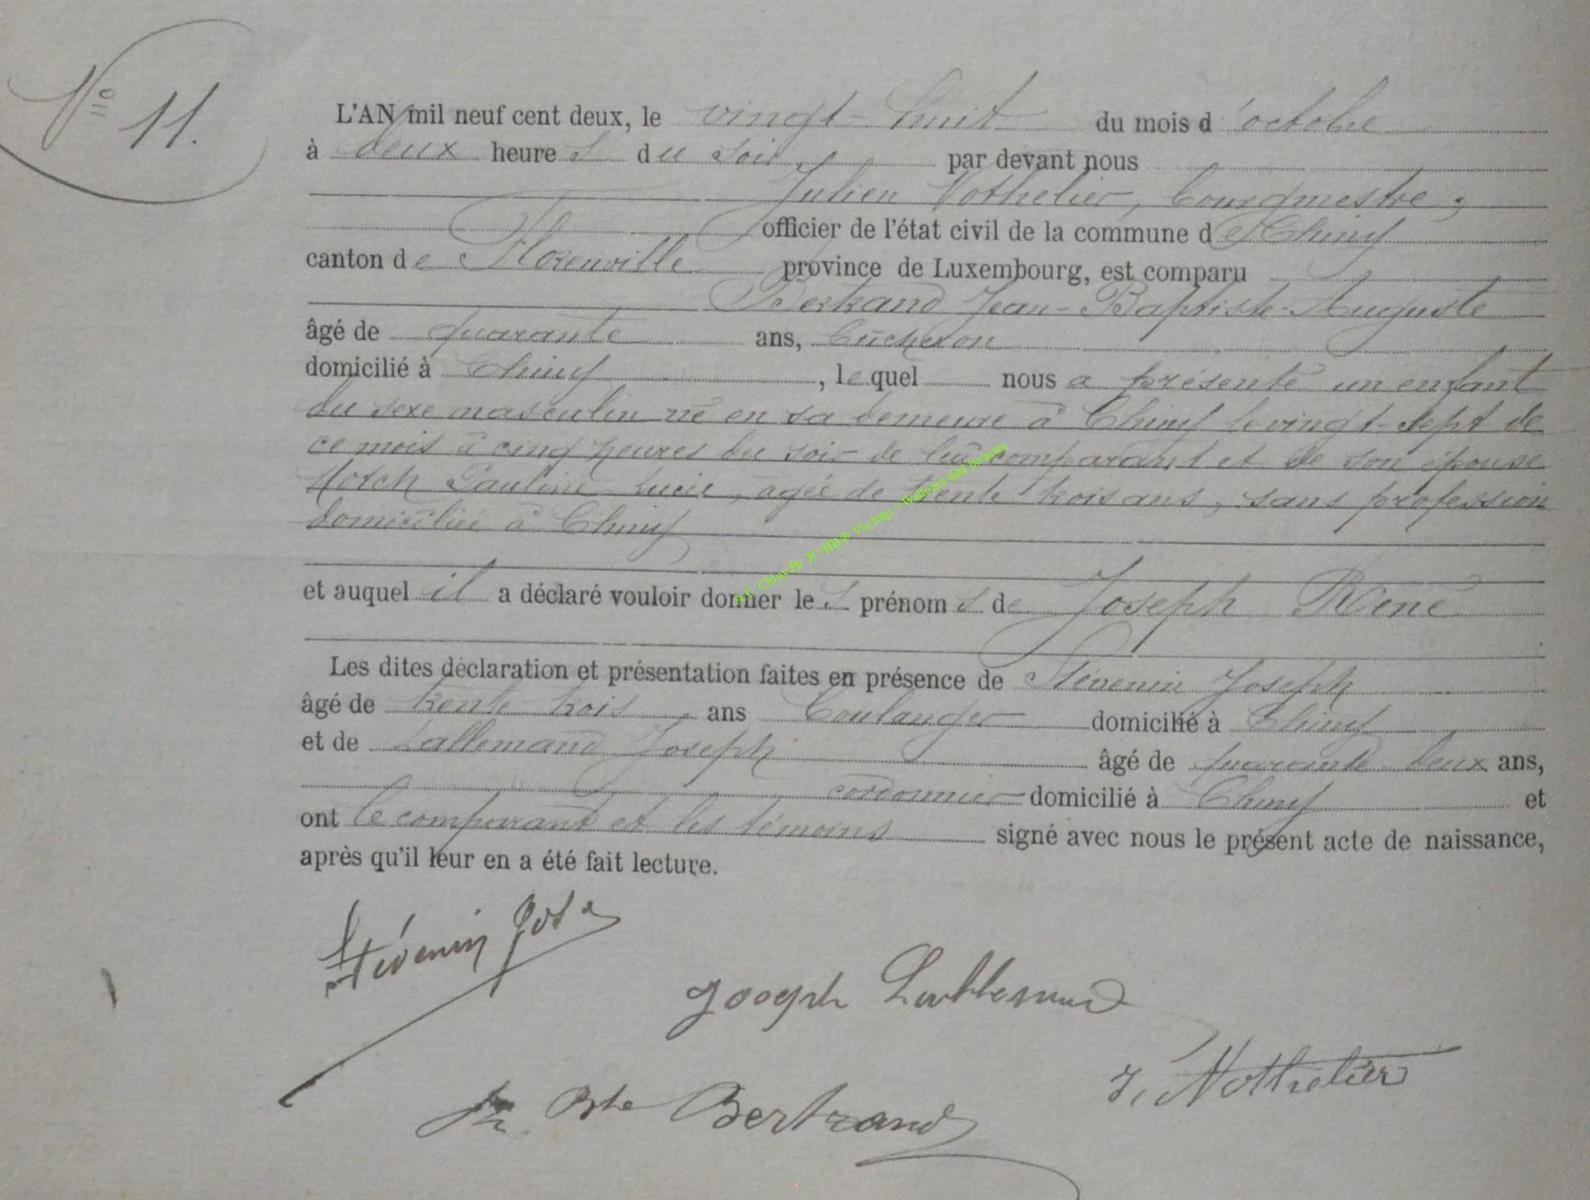 N° 11.
L'AN mil neuf cent deux, le vingt-huit du mois d'octobre
à deux heures du soir, par devant nous
Julien Nothelier, bourgmestre,
officier de l'état civil de la commune de Chiny
canton de Florenville province de Luxembourg, est comparu
Bertrand Jean-Baptiste-Auguste
âgé de quarante ans, bûcheron
domicilié à Chiny, lequel nous a présenté un enfant
du sexe masculin né en sa demeure à Chiny le vingt-sept de
ce mois à cinq heures du soir de lui comparant et de son épouse
Pauline Lucie, agée de trente trois ans, sans profession
domiciliée à Chiny
et auquel il a déclaré vouloir donner les prénoms de Joseph René
Les dites déclaration et présentation faites en présence de Stévenin Joseph
âgé de trente trois ans boulanger domicilié à Chiny
et de Lallemand Joseph âgé de quarante deux ans,
cordonnier domicilié à Chiny et
ont le comparant et les témoins signé avec nous le présent acte de naissance,
après qu'il leur en a été fait lecture.
Stévenin Jos
Joseph Lallemand
J. Nothelier
Jn Bte Bertrand